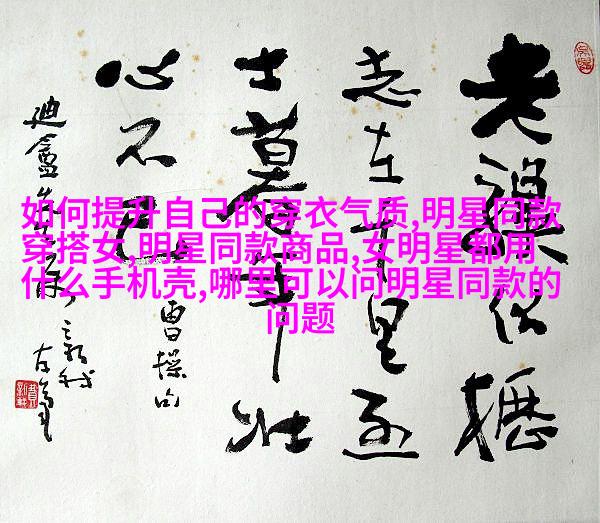 如何提升自己的穿衣气质,明星同款
穿搭女,明星同款商品,女明星都用
什么手机壳,哪里可以问明星同款的
问题
老驥伏櫪
志在千里烈
士暮年壮
心不已
曹操句